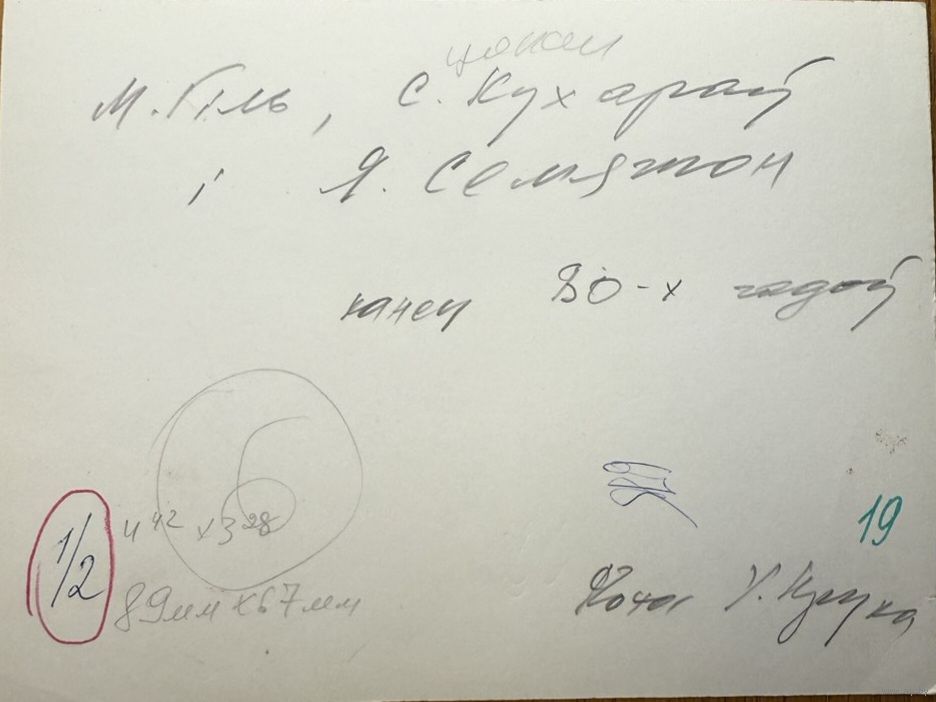 цокал
М. Гіль, С. Кухараў
і Я. Семяжон
канец 80-х гадоў
6
1/2
4 42 x 3 28
89мм x 67мм
19
Фота У. Крука